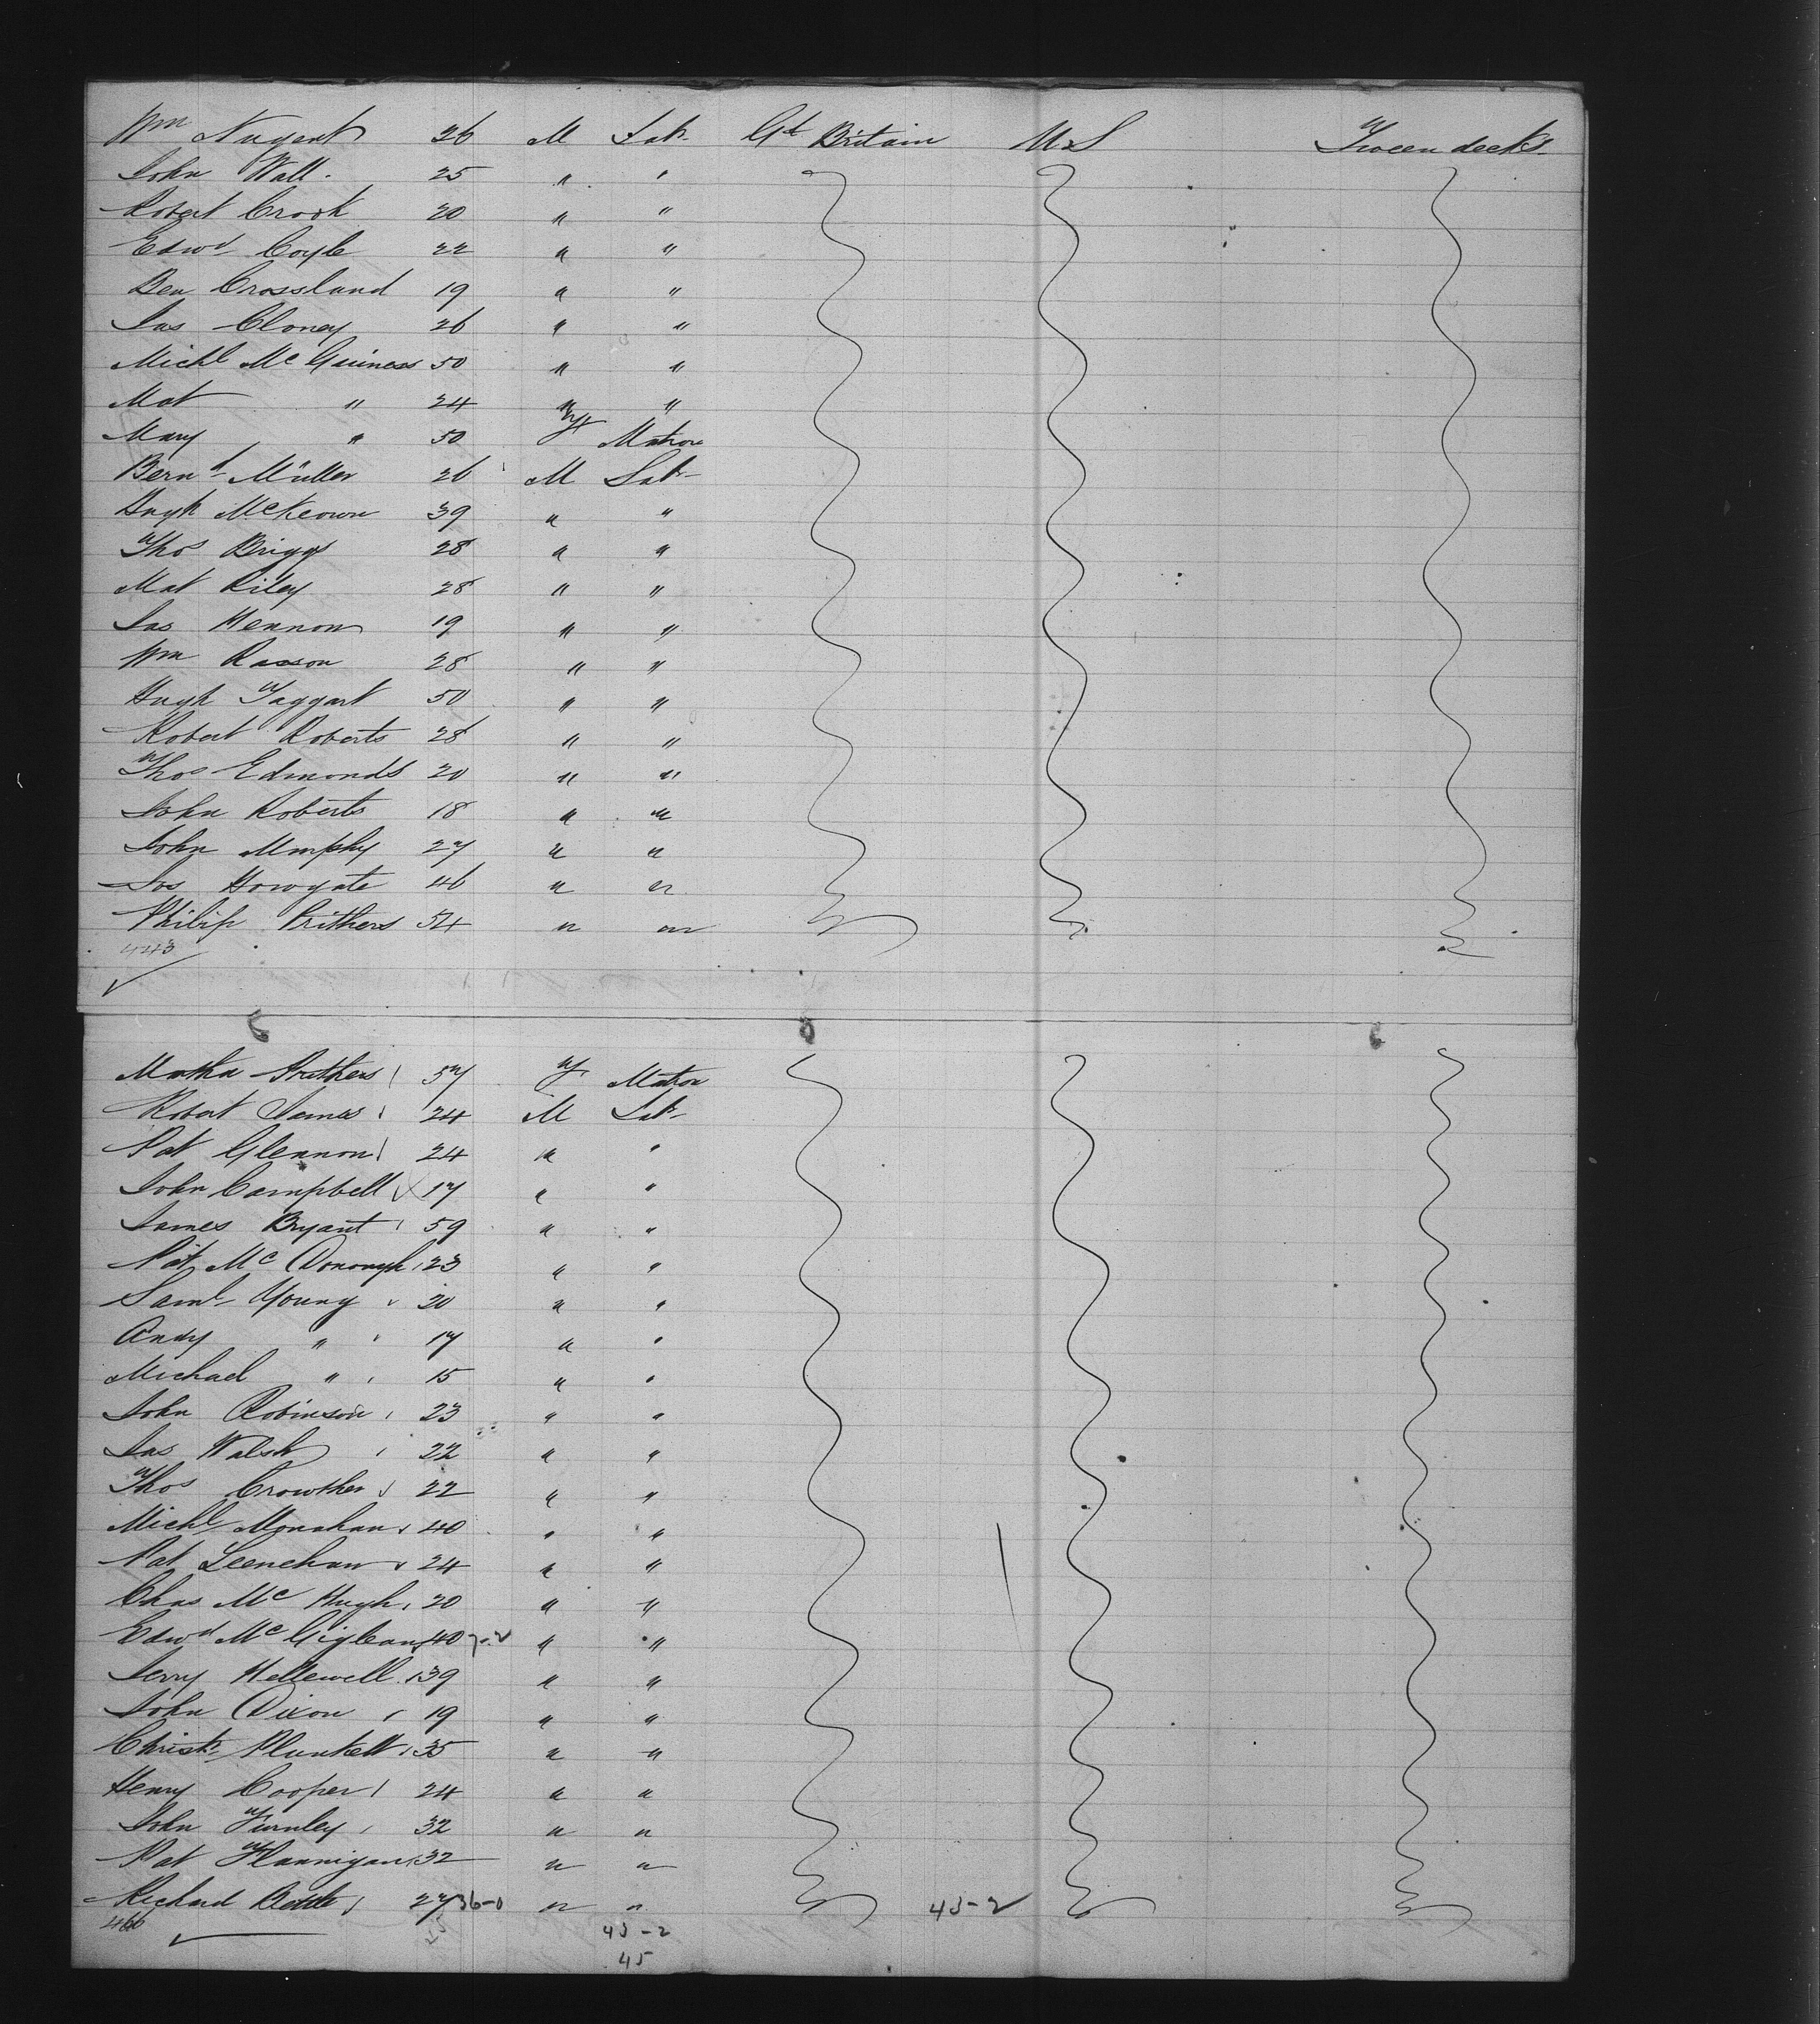 Wm Nugent 26 M Labr Gt Britain U.S Tween decks
John Wall. 25 " "
Robert Crook 20 " "
Edwd Coyle 22 " "
Ben Crossland 19 " "
Jas Cloney 26 " "
Michl McGuiness 50 " "
Mat " 24 " "
Mary " 50 F Matron
Bernd Müller 26 M Labr
Hugh McKeown 39 " "
Thos Briggs 28 " "
Mat Riley 28 " "
Jas Hennon 19 " "
Wm Rasson 28 " "
Hugh Taggart 50 " "
Robert Roberts 28 " "
Thos Edmonds 20 " "
John Roberts 18 " "
John Murphy 27 " "
Jos Howgate 46 " "
Philip Prithers 54 " "
443
Martha Prithers 57 F Matron
Robert James 24 M Labr
Pat Glennon 24 " "
John Campbell 17 " "
James Bryant 59 " "
Pat McDonough 23 " "
Saml Young 20 " "
Andy " 17 " "
Michael " 15 " "
John Robinson 23 " "
Jas Walsh 22 " "
Thos Crowther 22 " "
Michl Monahan 40 " "
Pat Leenehan 24 " "
Chas McHugh 20 " "
Edwd McGiglean 40 7-2 " "
Jerry Hellewell 39 " "
John Dixon 19 " "
Christr Plunkett 35 " "
Henry Cooper 24 " "
John Turnley 32 " "
Pat Flannigan 32 " "
Richard 27 36-0 " " 43-2
466 25 43-2
45